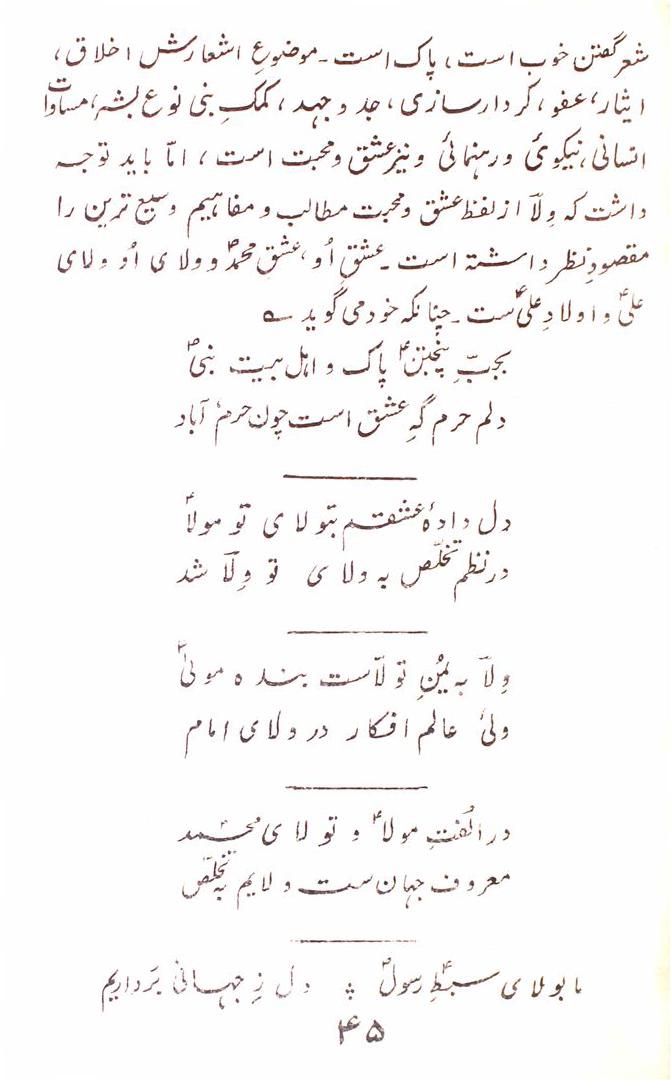 شعر گفتن خوب است، پاک است۔ موضوعِ اشعارش اخلاق،
ایثار، عفو، کردار سازی، جد و جہد، کمکِ بنی نوع بشر، مساوات
انسانی، نیکوئ و رہنمائی و نیز عشق و محبت است، امّا باید توجہ
داشت کہ وِلؔا از لفظ عشق و محبت مطالب و مفاہیم وسیع ترین را
مقصودِ نظر داشتہ است۔ عشقِ اُو، عشقِ محمدؐ و ولا ی اُو ولای
علیؑ و اولادِ علیؑ ست۔ چنانکہ خود می گوید ؎
بحبِّ پنجتنؑ پاک و اہل بیت نبیؐ
دلم حرم گہِ عشق است چون حرم آباد
دل دادۂ عشقم بتولا ی تو مولاؑ
در نظم تخلّص بہ ولا ی تو وِلؔا شد
وِلؔا بہ یُمنِ تولّاست بندہ مولیٰؑ
ولیٔ عالم افکار در ولای امام
در اُلفتِ مولاؑ و تولا ی محمّد
معروف جہان ست ولایم بہ تخلّص
ما بولای سبطِؑ رسولؐ ؞ دل زِ جہانی بَرداریم
۴۵